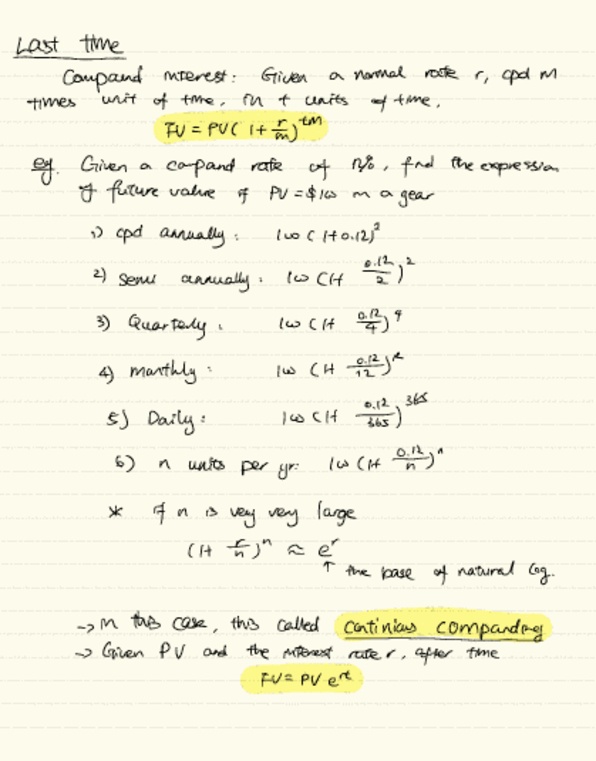 Last time
Compand interest: Given a normal rate r, cpd m
times unit of time, in t units of time,
FV = PV( 1 + r/m )^tm
eg. Given a compand rate of 12%, find the expression
of future value of PV = $100 in a year
1) cpd annually: 100 ( 1+0.12)^2
2) semi annually: 100 (1+ 0.12/2 )^2
3) Quarterly: 100 (1+ 0.12/4 )^4
4) monthly: 100 (1+ 0.12/12 )^12
5) Daily: 100 (1+ 0.12/365 )^365
6) n units per yr: 100 (1+ 0.12/n )^n
* if n is very very large
(1+ r/n )^n ≈ e^r
↑ the base of natural log.
-> in this case, this called continius companding
-> Given PV and the interest rate r, after time
FV = PV e^rt